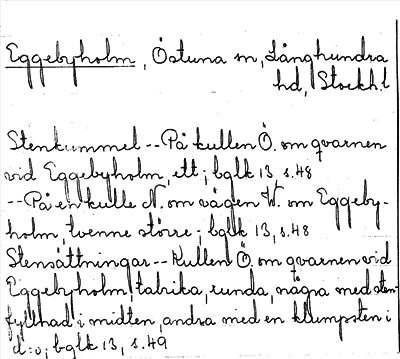 Eggebyholm, Östuna sn, Långhundra
hd, Stockh.l
Stenkummel -- På kullen Ö. om qvarnen
vid Eggebyholm, ett; bglk 13, s.48
-- På en kulle N. om vägen W. om Eggeby-
holm, tvenne större; bglk 13, s.48
Stensättningar -- Kullen Ö. om qvarnen vid
Eggebyholm, talrika, runda, några med sten-
fyllnad i midten, andra med en klumpsten i
d:o; bglk 13, s.49